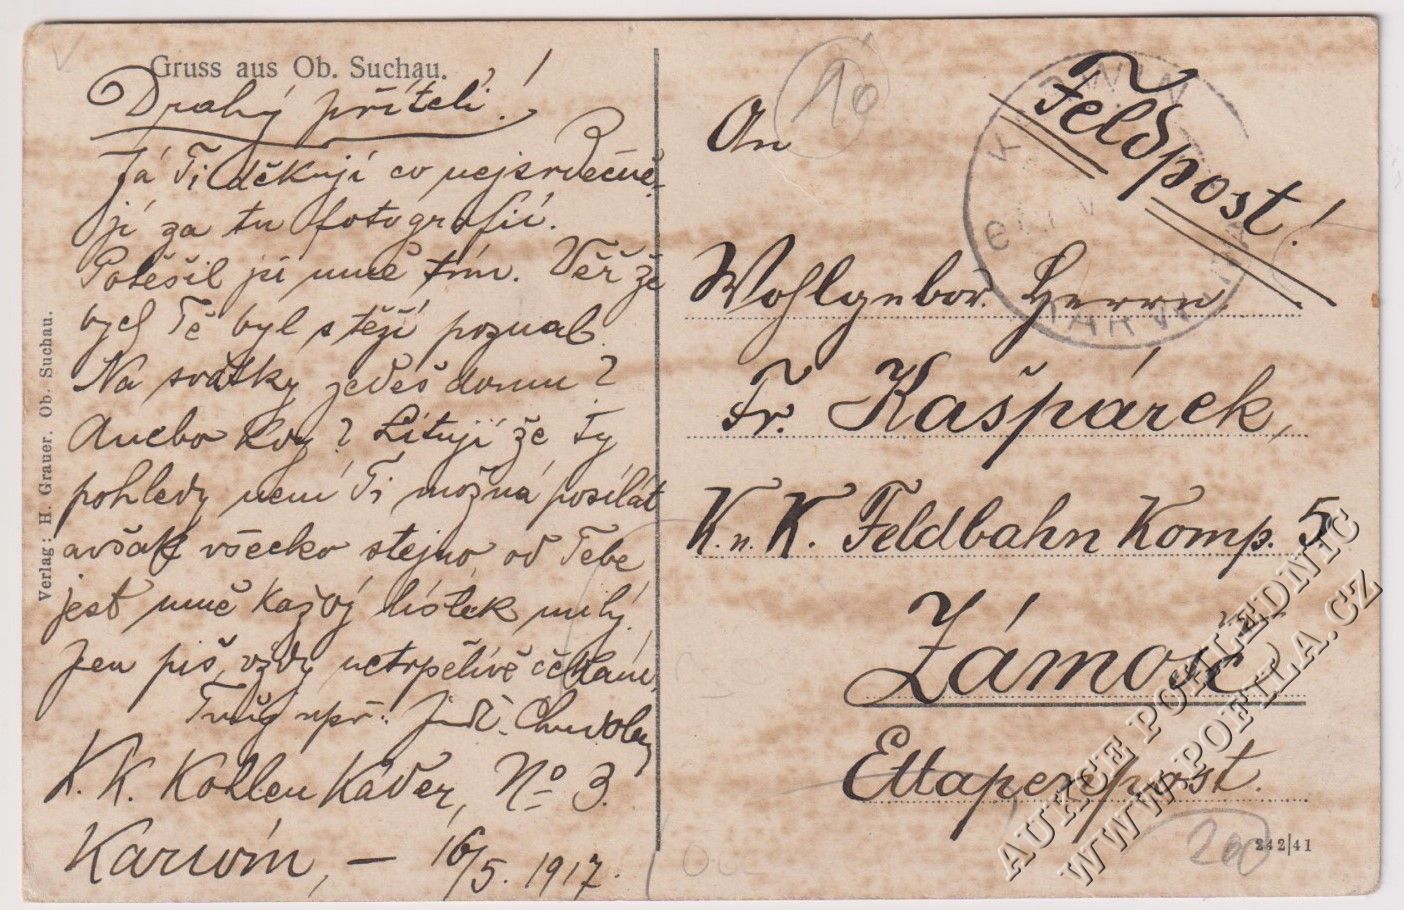 Gruss aus Ob. Suchau.
Drahý příteli!
Já Ti děkuji co nejsrdečně-
ji za tu fotografii.
Potěšil jsi mně tím. Věř že
bych Tě byl stěží poznal.
Na svátky jedeš domu?
Anebo kdy? Lituji že ty
pohledy není Ti možná posílat
avšak všecko stejno, od Tebe
jest mně každý lístek milý.
Jen piš, vždy netrpělivě čekám.
Tvůj upř.
K. K. Kohlen Kader, No 3.
Karwin, - 16/5. 1917.
Verlag: H. Grauer. Ob. Suchau.
10
Feldpost!
An
Wohlgebor. Herrn
Fr. Kašpárek,
K. u. K. Feldbahn Komp. 5
Zámość
Ettapenpost.
200
242|41
KARWIN
AUKCE POHLEDNIC
WWW.POFILA.CZ